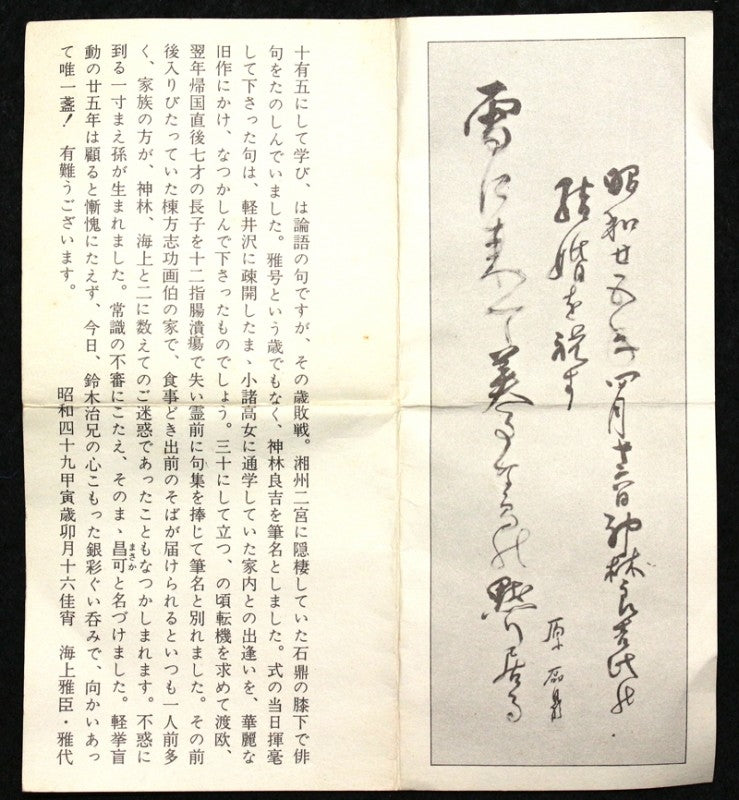 昭和廿五年四月十六日神林良吉氏の
結婚を祝す
雪に来て美事な鳥の黙り居る
原 石鼎
十有五にして学び、は論語の句ですが、その歳敗戦。湘州二宮に隠棲していた石鼎の膝下で俳
句をたのしんでいました。雅号という歳でもなく、神林良吉を筆名としました。式の当日揮毫
して下さった句は、軽井沢に疎開したまゝ小諸高女に通学していた家内との出逢いを、華麗な
旧作にかけ、なつかしんで下さったものでしょう。三十にして立つ、の頃転機を求めて渡欧、
翌年帰国直後七才の長子を十二指腸潰瘍で失い霊前に句集を捧じて筆名と別れました。その前
後入りびたっていた棟方志功画伯の家で、食事どき出前のそばが届けられるといつも一人前多
く、家族の方が、神林、海上と二に数えてのご迷惑であったこともなつかしまれます。不惑に
到る一寸まえ孫が生まれました。常識の不審にこたえ、そのまゝ昌可(まさか)と名づけました。軽挙盲
動の廿五年は顧ると慚愧にたえず、今日、鈴木治兄の心こもった銀彩ぐい呑みで、向かいあっ
て唯一盞！ 有難うございます。
昭和四十九甲寅歳卯月十六佳宵 海上雅臣・雅代